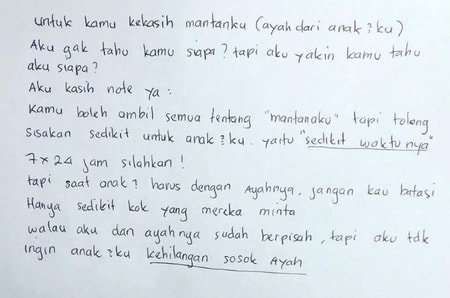 untuk kamu kekasih mantanku (ayah dari anak²ku)
Aku gak tahu kamu siapa? tapi aku yakin kamu tahu
aku siapa?
Aku kasih note ya :
Kamu boleh ambil semua tentang "mantanaku" tapi tolong
sisakan sedikit untuk anak²ku. yaitu "sedikit waktunya"
7 x 24 jam silahkan !
tapi saat anak² harus dengan Ayahnya, jangan kau batasi
Hanya sedikit kok yang mereka minta
walau aku dan ayahnya sudah berpisah, tapi aku tdk
ingin anak²ku kehilangan sosok Ayah